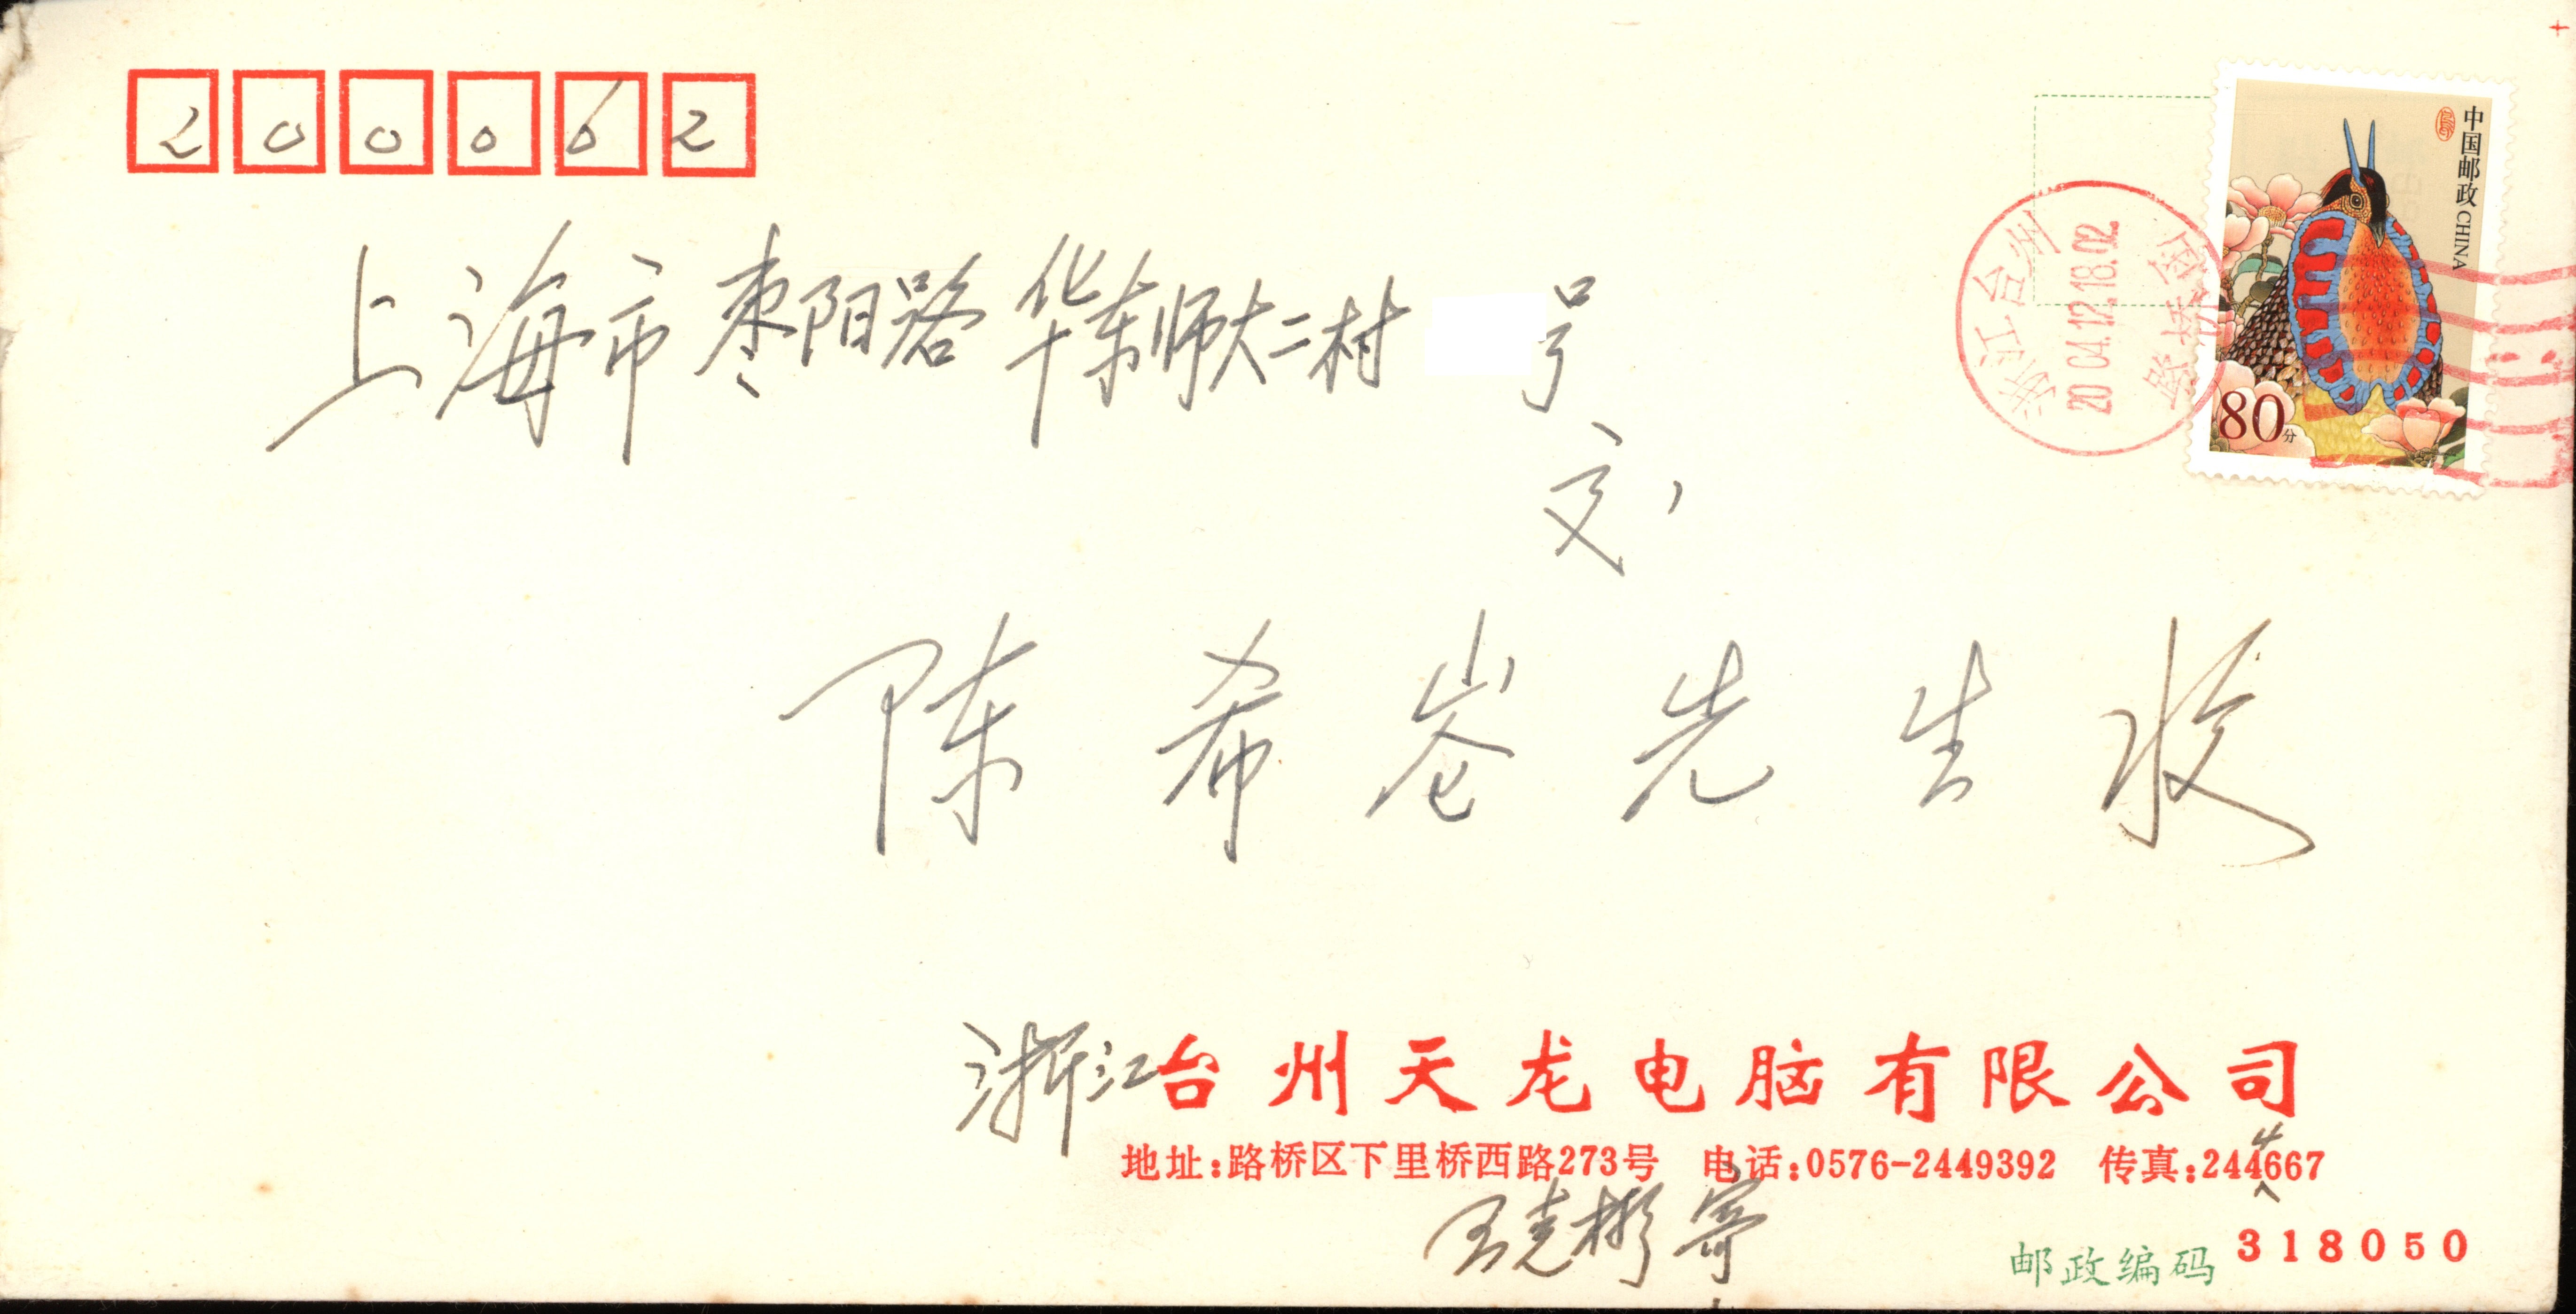 200062
上海市枣阳路华东师大二村 号
交
陈希苍先生收
中国邮政 CHINA
80分
浙江台州
20 04.12.18.02
浙江台州天龙电脑有限公司
地址:路桥区下里桥西路273号 电话:0576-2449392 传真:244667
4
寄
邮政编码 318050